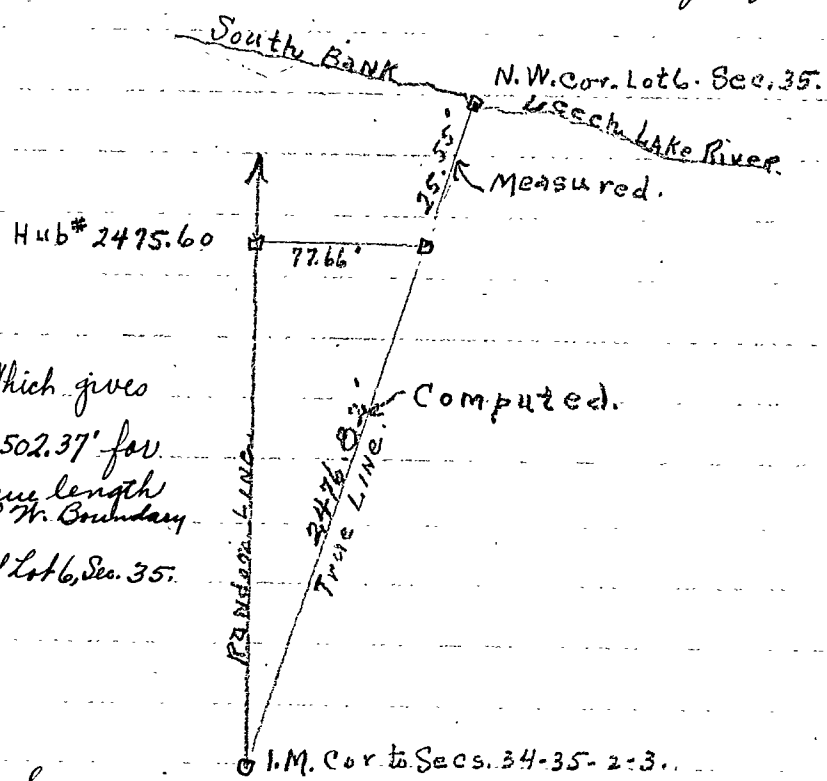 South Bank
N.W. Cor. Lot 6. Sec. 35.
Leech Lake River.
25.55'
Measured.
Hub# 2475.60
77.66'
Which gives
502.37' for
length
W. Boundary
Lot 6, Sec. 35.
Computed.
2476.82'
True Line.
Random Line
I.M. Cor to Secs. 34-35-2-3.